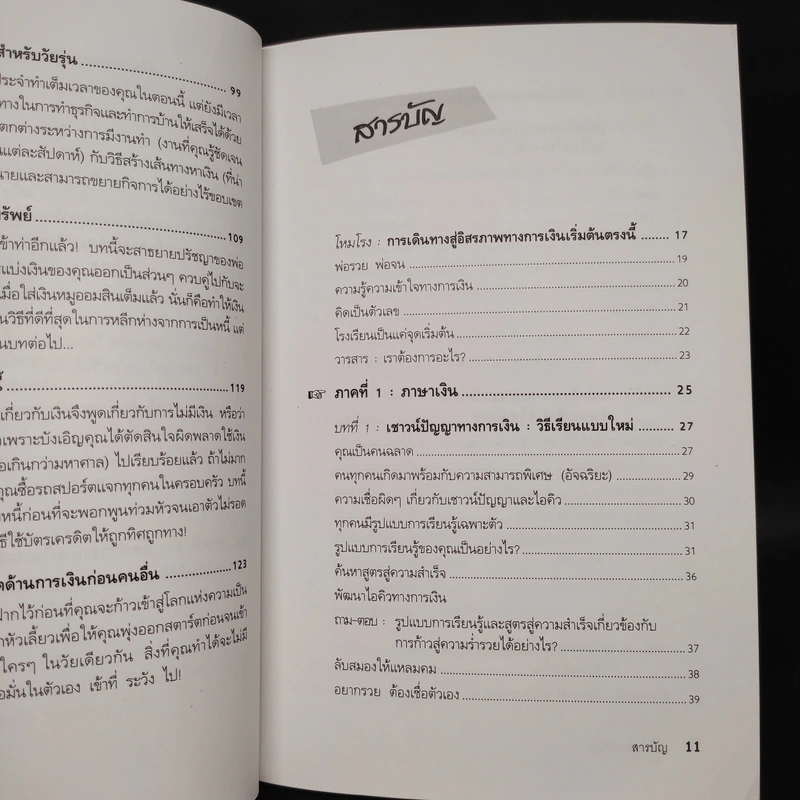 สำหรับวัยรุ่น
99
ประจำทำเต็มเวลาของคุณในตอนนี้ แต่ยังมีเวลา
ทางในการทำธุรกิจและทำการบ้านให้เสร็จได้ด้วย
ตกต่างระหว่างการมีงานทำ (งานที่คุณรู้ชัดเจน
แต่ละสัปดาห์) กับวิธีสร้างเส้นทางหาเงิน (ที่น่า
นายและสามารถขยายกิจการได้อย่างไร้ขอบเขต
รัพย์
109
ข้าท่าอีกแล้ว! บทนี้จะสาธยายปรัชญาของพ่อ
รแบ่งเงินของคุณออกเป็นส่วนๆ ควบคู่ไปกับจะ
เมื่อใส่เงินหมูออมสินเต็มแล้ว นั่นก็คือทำให้เงิน
นวิธีที่ดีที่สุดในการหลีกห่างจากการเป็นหนี้ แต่
นบทต่อไป...
119
เกี่ยวกับเงินจึงพูดเกี่ยวกับการไม่มีเงิน หรือว่า
เพราะบังเอิญคุณได้ตัดสินใจผิดพลาดใช้เงิน
อเกินกว่ามหาศาล) ไปเรียบร้อยแล้ว ถ้าไม่มาก
คุณซื้อรถสปอร์ตแจกทุกคนในครอบครัว บทนี้
หนี้ก่อนที่จะพอกพูนท่วมหัวจนเอาตัวไม่รอด
ธีใช้บัตรเครดิตให้ถูกทิศถูกทาง!
ตด้านการเงินก่อนคนอื่น 123
ฝากไว้ก่อนที่คุณจะก้าวเข้าสู่โลกแห่งความเป็น
กหัวเลี้ยวเพื่อให้คุณพุ่งออกสตาร์ตก่อนจนเข้า
ใครๆ ในวัยเดียวกัน สิ่งที่คุณทำได้จะไม่มี
อมั่นในตัวเอง เข้าที่ ระวัง ไป!
สารบัญ
โหมโรง : การเดินทางสู่อิสรภาพทางการเงินเริ่มต้นตรงนี้ ........ 17
พ่อรวย พ่อจน ........ 19
ความรู้ความเข้าใจทางการเงิน ........ 20
คิดเป็นตัวเลข ........ 21
โรงเรียนเป็นแค่จุดเริ่มต้น ........ 22
วารสาร : เราต้องการอะไร? ........ 23
☞ ภาคที่ 1 : ภาษาเงิน ........ 25
บทที่ 1 : เชาวน์ปัญญาทางการเงิน : วิธีเรียนแบบใหม่ ........ 27
คุณเป็นคนฉลาด ........ 27
คนทุกคนเกิดมาพร้อมกับความสามารถพิเศษ (อัจฉริยะ) ........ 29
ความเชื่อผิดๆ เกี่ยวกับเชาวน์ปัญญาและไอคิว ........ 30
ทุกคนมีรูปแบบการเรียนรู้เฉพาะตัว ........ 31
รูปแบบการเรียนรู้ของคุณเป็นอย่างไร? ........ 31
ค้นหาสูตรสู่ความสำเร็จ ........ 36
พัฒนาไอคิวทางการเงิน
ถาม-ตอบ : รูปแบบการเรียนรู้และสูตรสู่ความสำเร็จเกี่ยวข้องกับ
การก้าวสู่ความร่ำรวยได้อย่างไร? ........ 37
ลับสมองให้แหลมคม ........ 38
อยากรวย ต้องเชื่อตัวเอง ........ 39
สารบัญ 11